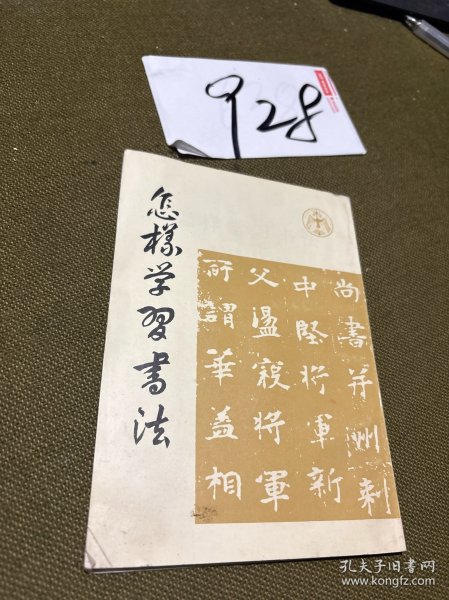 928
怎樣学習書法
尚書并州刺
中堅将軍新
父盪寇将軍
所謂華盖相
孔夫子旧书网
www.kongfz.com